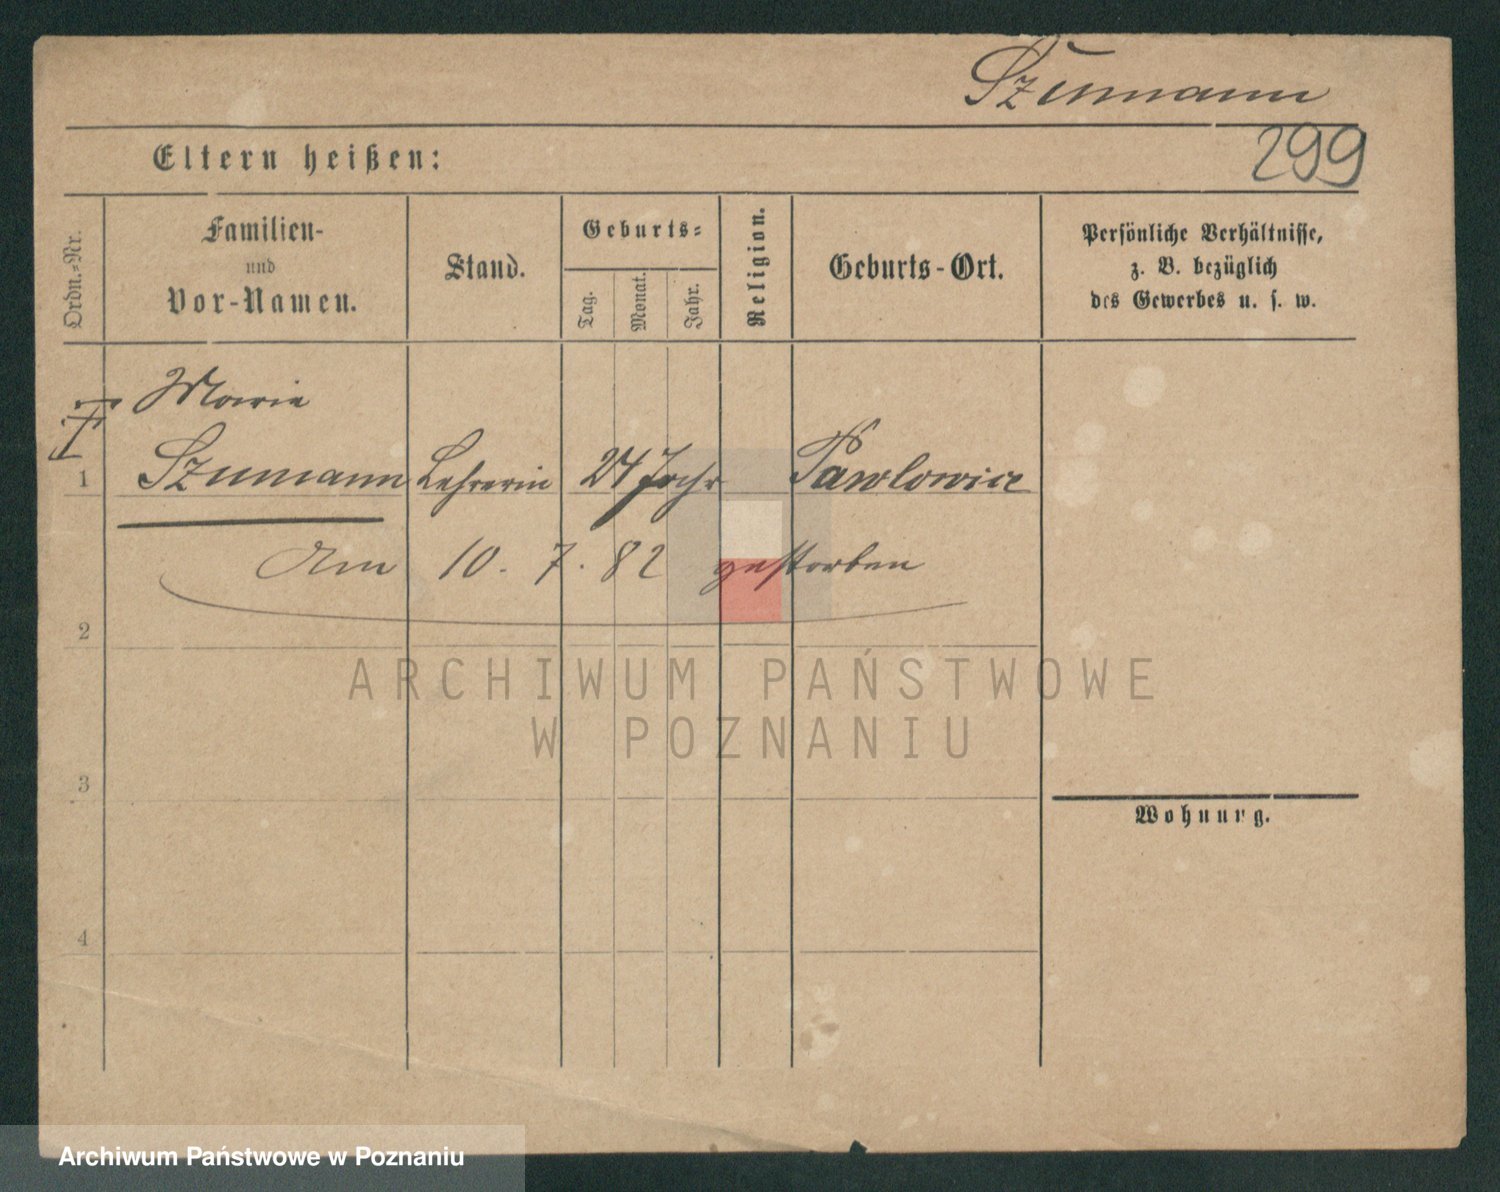 Szumann
299
Eltern heißen:
Ordn.-Nr.
Familien-
und
Vor-Namen.
Stand.
Geburts-
Tag.
Monat.
Jahr.
Religion.
Geburts-Ort.
Persönliche Verhältnisse,
z. B. bezüglich
des Gewerbes u. s. w.
Marie
1 Szumann Lehrerin 24 Jahr Pawlowice
Am 10. 7. 82 gestorben
2
ARCHIWUM PAŃSTWOWE
W POZNANIU
3
Wohnung.
4
Archiwum Państwowe w Poznaniu